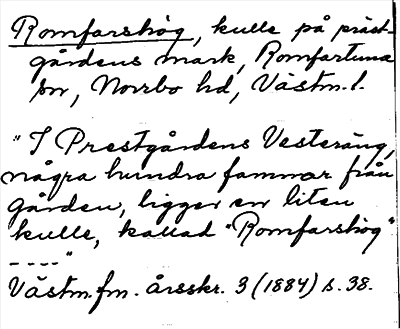 Romfarshög, kulle på präst-
gårdens mark, Romfartuna
sn, Norrbo hd, Västm.l.
"I Prestgårdens Vesteräng,
några hundra fammar från
gården, ligger en liten
kulle, kallad "Romfarshög"
----"
Västm.fm. årsskr. 3 (1884) s. 38.